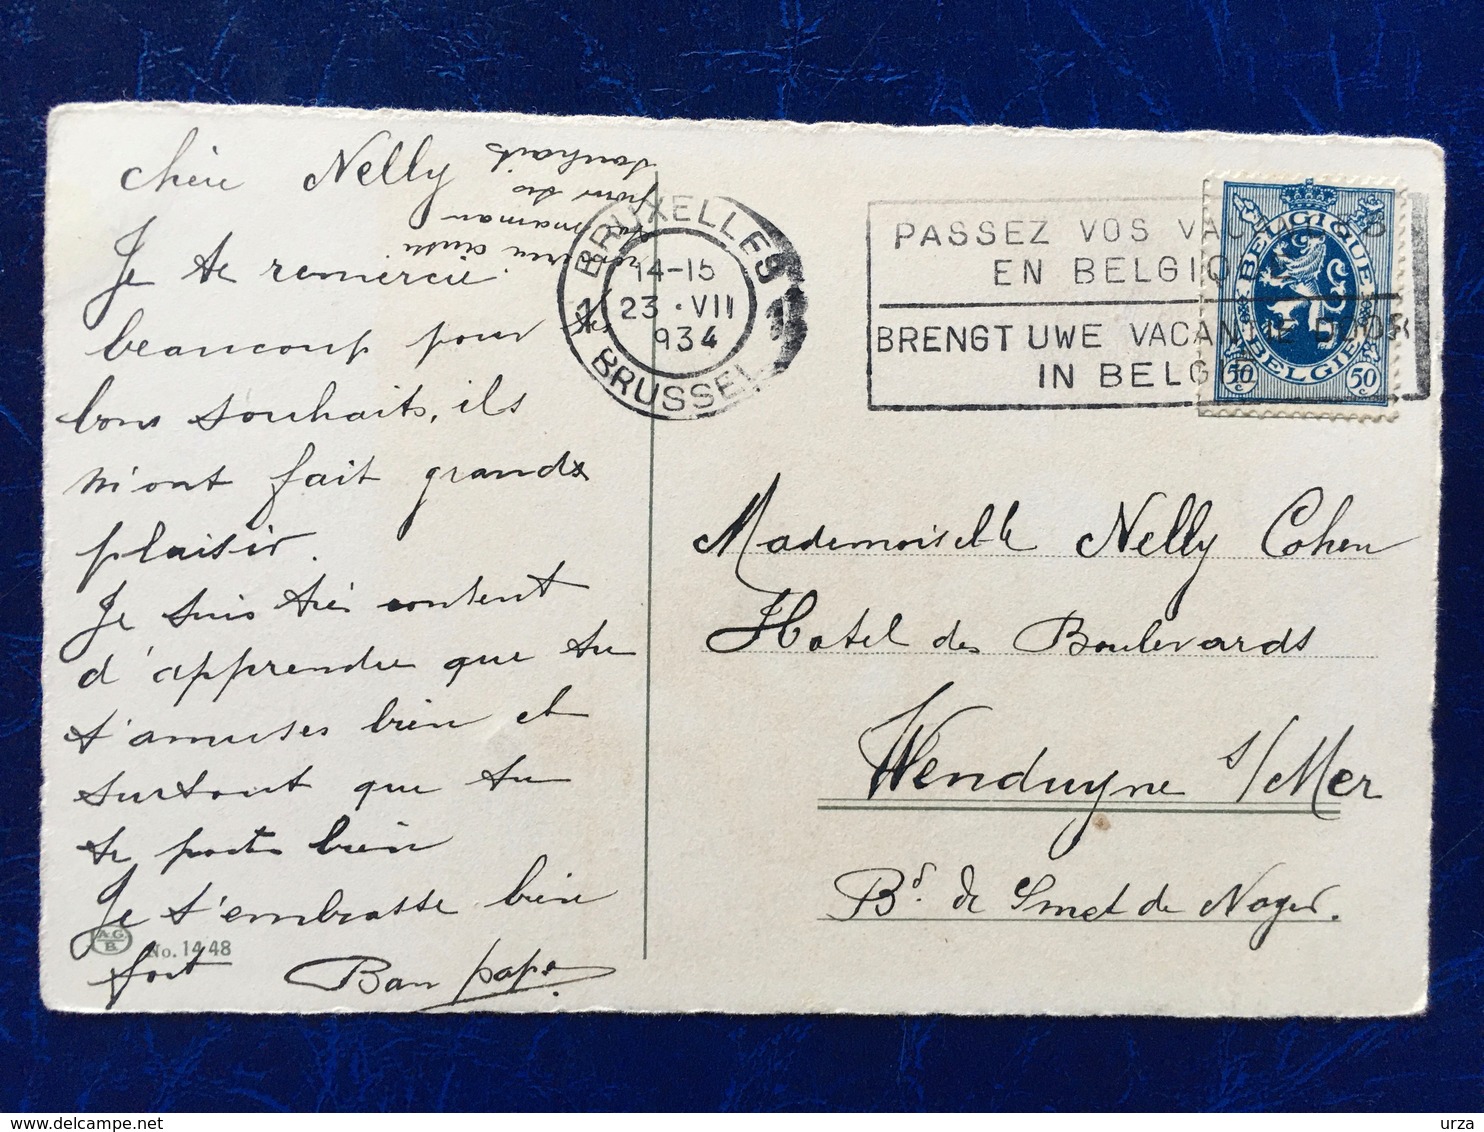 chère Nelly
Je te remercie
beaucoup pour tes
bons souhaits, ils
m'ont fait grands
plaisir.
Je suis très content
d'apprendre que tu
t'amuses bien et
surtout que tu
te porte bien
Je t'embrasse bien
fort Bon papa
maman
pour des
souhaits
A.G.
B.
No. 1448
BRUXELLES
14-15
23 · VII
934
BRUSSEL
1 1
PASSEZ VOS VACANCES
EN BELGIQUE
BRENGT UWE VACANTIE DOOR
IN BELGIE
BELGIQUE
BELGIË
50 c
50 c
Mademoiselle Nelly Cohen
Hotel des Boulevards
Wenduyne s/Mer
Bd. de Smet de Nayer.
delcampe.net
urza